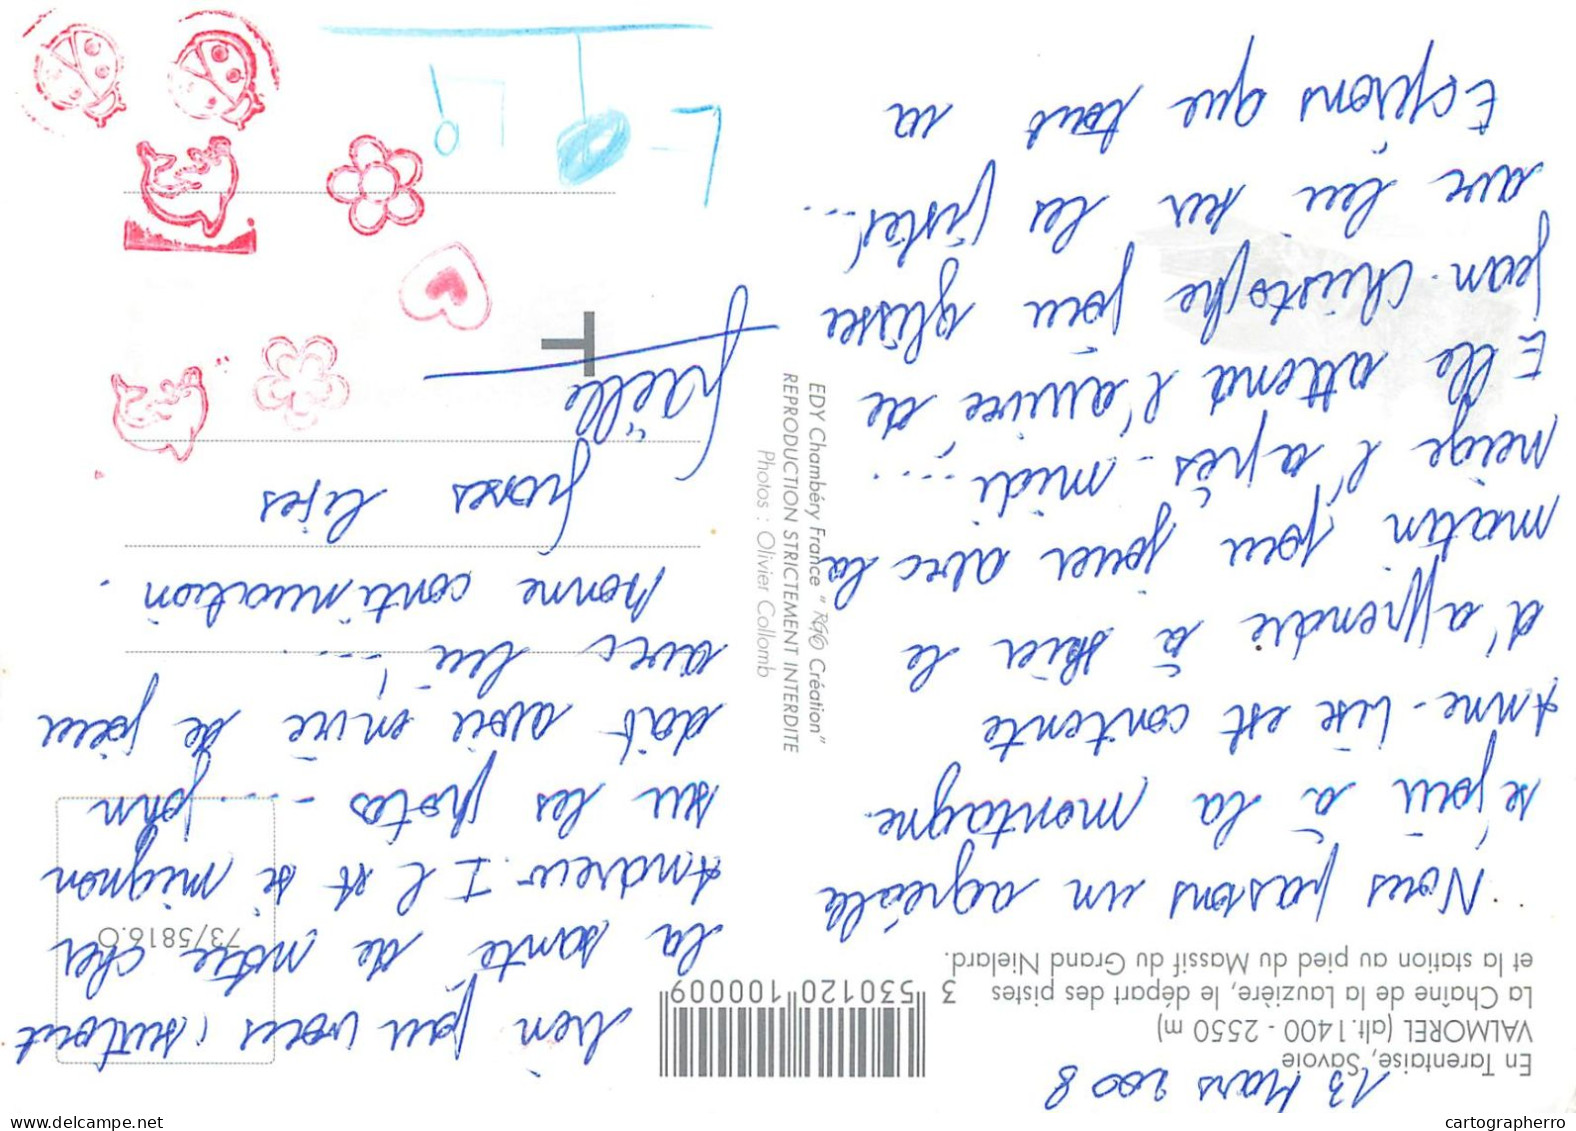 En Tarentaise, Savoie
VALMOREL (alt. 1400 - 2550 m)
La Chaîne de la Lauzière, le départ des pistes
et la station au pied du Massif du Grand Nielard.
13 Mars 2008
Nous passons un agréable
séjour à la montagne.
Anne-Lise est contente
d'apprendre à skier le
matin pour jouer avec la
neige l'après-midi....
Elle attend l'arrivée de
Jean-Christophe pour glisser
avec lui sur les pistes!...
Espérons que tout va
bien pour vous (surtout
la santé de notre cher
Andrew. Il est si mignon
sur les photos - .... John
doit avoir envie de jouer
avec lui! ...
Bonne continuation.
Grosses bises
Gaëlle
3 530120 100009
73/5816.O
EDY Chambéry France " Création"
REPRODUCTION STRICTEMENT INTERDITE
Photos : Olivier Collomb
T
cartographerro